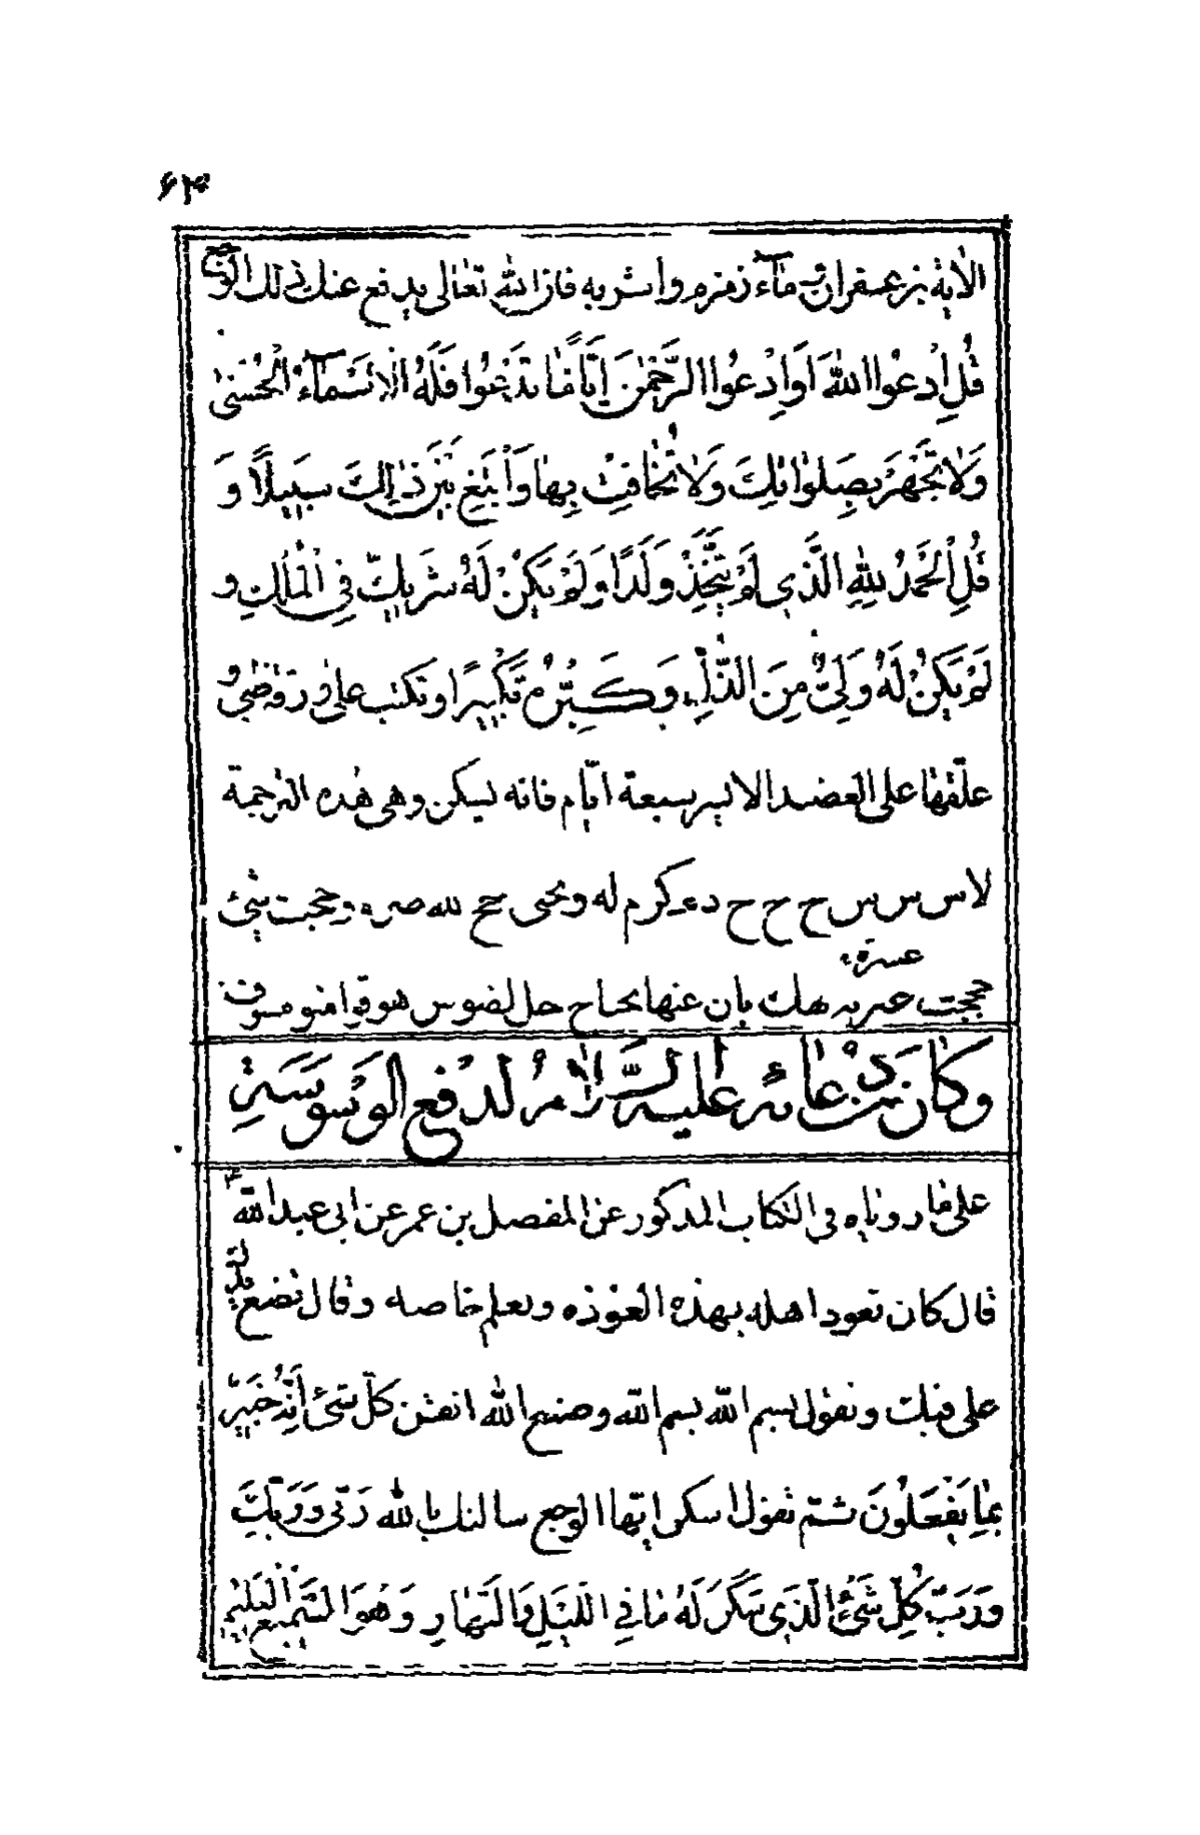 ۶۳
الاية بزعفران بماء زمزم واشربه فان الله تعالى يدفع عنك ذلك الوجع
قُلِ ادْعُوا اللهَ اَوِادْعُوا الرَّحْمٰنَ اَيًّا مَا تَدْعُوا فَلَهُ الْاَسْمَآءُ الْحُسْنىٰ
وَلَا تَجْهَرْ بِصَلوٰاتِكَ وَلَا تُخَافِتْ بِهَا وَابْتَغِ بَيْنَ ذٰلِكَ سَبِيلًا وَ
قُلِ الْحَمْدُ لِلّٰهِ الَّذِي لَمْ يَتَّخِذْ وَلَدًا وَلَمْ يَكُنْ لَهُ شَرِيكٌ فِي الْمُلْكِ و
لَمْ يَكُنْ لَهُ وَلِيٌّ مِنَ الذُّلِّ وَكَبِّرْهُ تَكْبِيرًا وتكتب على ورقة ظبى و
علّقها على العضد الايسر سبعة ايّام فانه ليسكن وهى هذه الترجمة
لاس س س ح ح ح دء كرم له ومحى حج لله صره وحجت
عسرة
حججت هلك بان عنها حل لضوس هو
وَكَانَ مِنْ دُعَائِهِ عَلَيْهِ السَّلَامُ لِدَفْعِ الْوَسْوَسَةِ
على ما رويناه فى الكتاب المذكور عن المفضل بن عمر عن ابى عبد الله ع
قال كان تعود اهله بهذه العوذه ويعلم خاصه وقال تضع يدك
على قبلك وتقول بسم الله بسم الله وصنع الله اتقن كلّ شىءٍ اَنَّهُ خَبِيرٌ
بِمَا يَفْعَلُونَ ثم تقول اسكن ايّها الوجع سالتك بالله رَبّى وَرَبِّكَ
وَرَبِّ كُلِّ شَىْءٍ الَّذِى سَكَنَ لَهُ مَا فِي اللَّيْلِ وَالنَّهَارِ وَهُوَ السَّمِيعُ الْعَلِيمُ